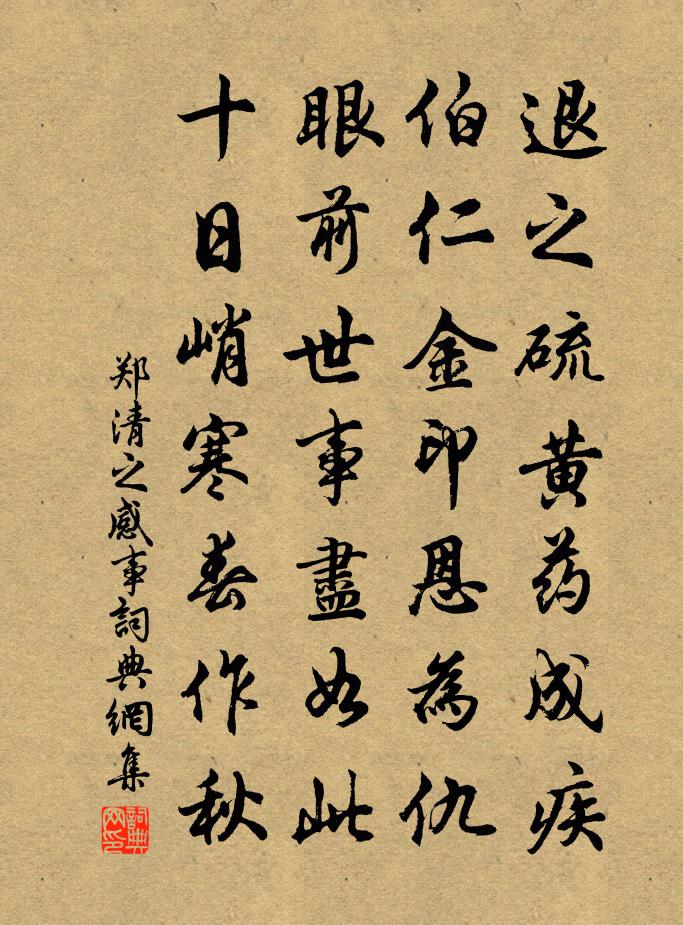 退之硫黄药成疾
伯仁金印恩為仇
眼前世事盡如此
十日峭寒春作秋
郑清之感事詞典網集
詞典
网印